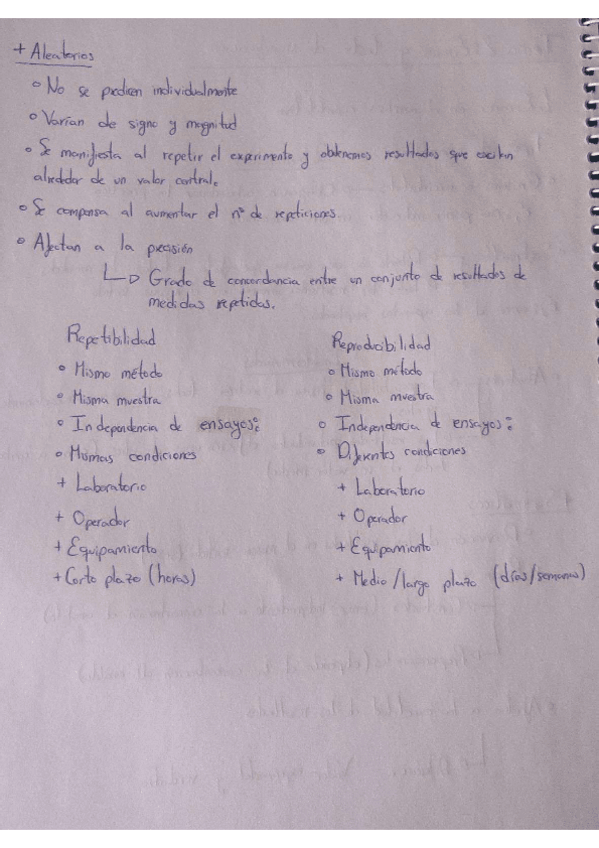 + Aleatorios
o No se predicen individualmente
o Varían de signo y magnitud
o Se manifiesta al repetir el experimento y obtenemos resultados que oscilan
alrededor de un valor central.
o Se compensa al aumentar el nº de repeticiones
o Afectan a la precisión
Grado de concordancia entre un conjunto de resultados de
medidas repetidas.
Repetibilidad
o Mismo método
o Misma muestra
o Independencia de ensayos:
o Mismas condiciones
+ Laboratorio
+ Operador
+ Equipamiento
+ Corto plazo (horas)
Reproducibilidad
o Mismo método
o Misma muestra
o Independencia de ensayos:
o Diferentes condiciones
+ Laboratorio
+ Operador
+ Equipamiento
+ Medio/largo plazo (días/semanas)